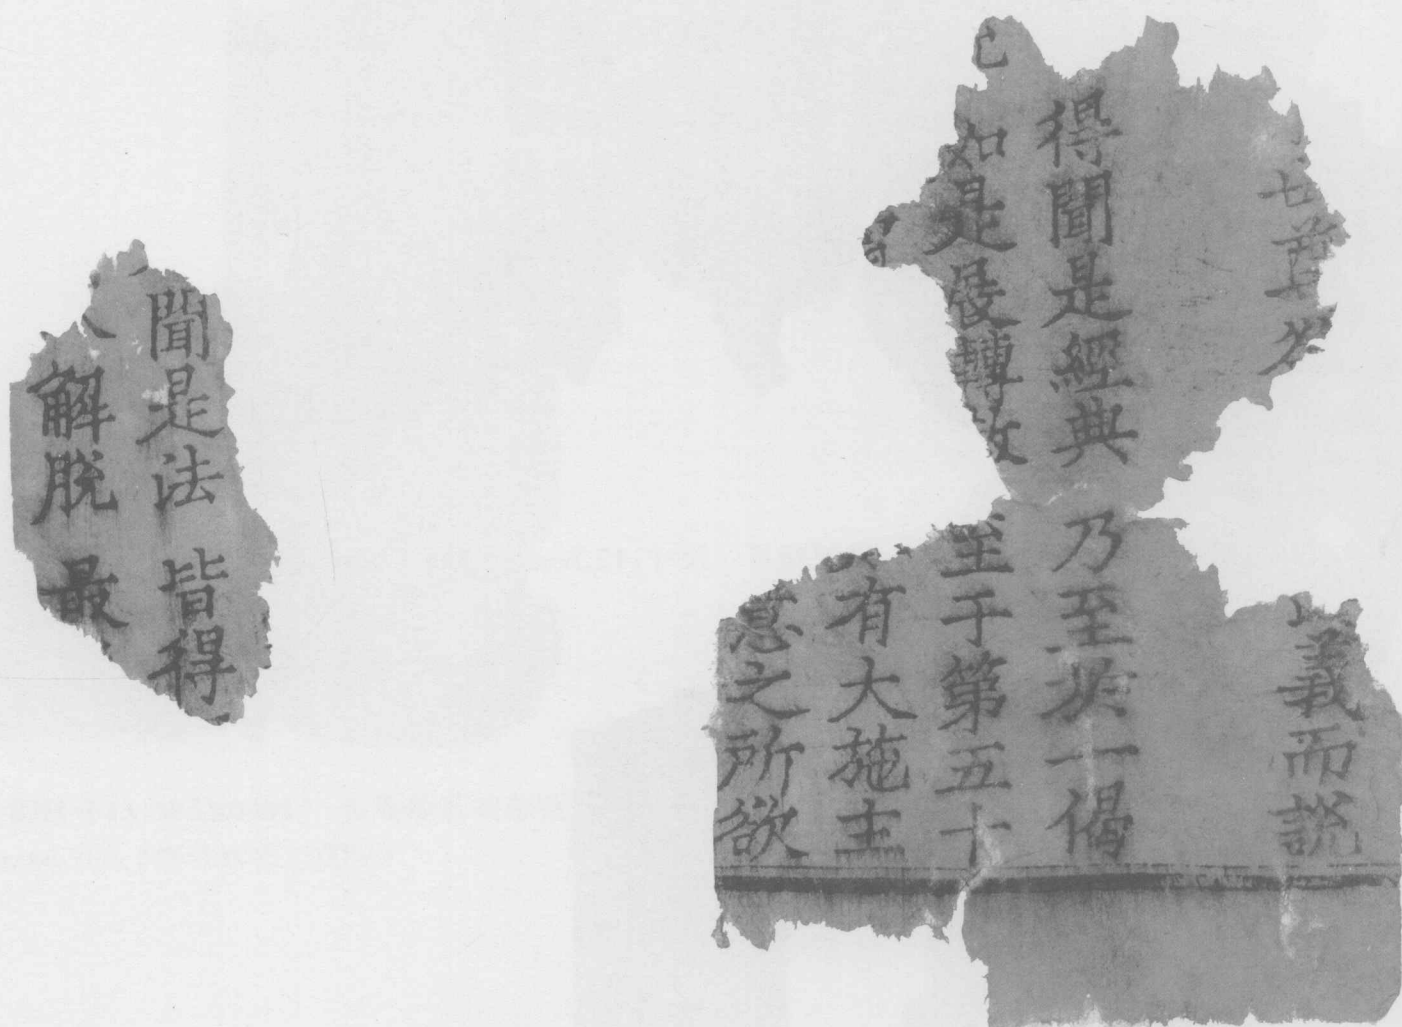 世尊欲 義而説
得聞是經典 乃至於一偈
如是展轉教 至于第五十
有大施主
意之所欲
聞是法 皆得
解脱 最